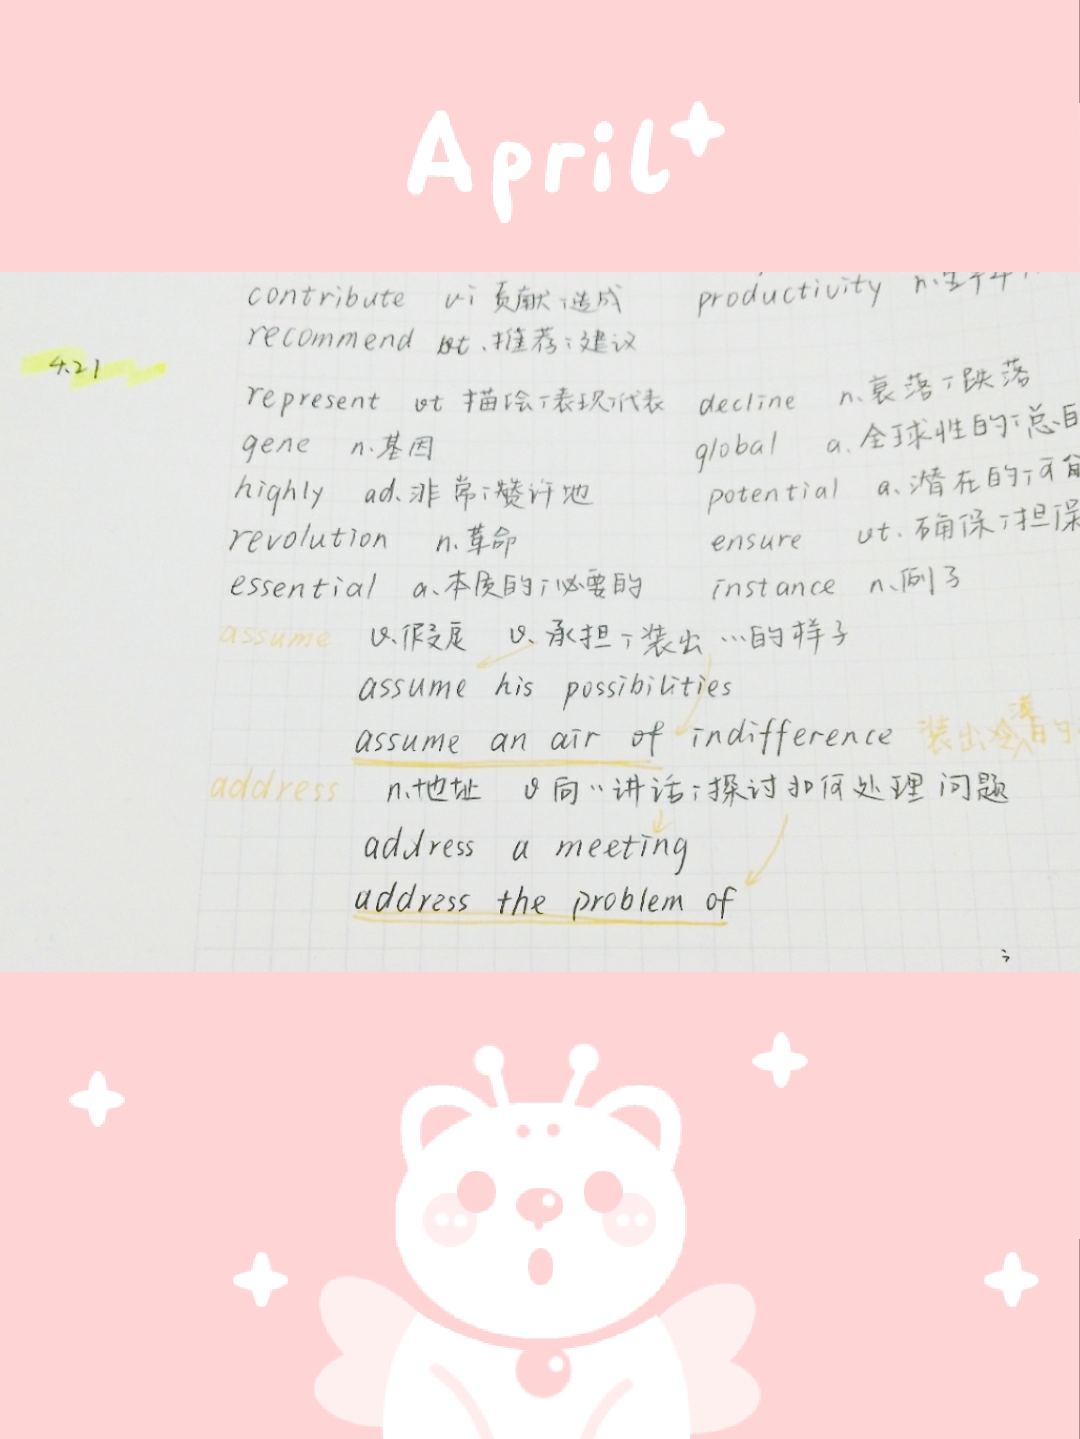 April
contribute vi 贡献;造成 productivity n.
recommend vt.推荐;建议
4.21
represent vt 描绘;表现;代表 decline n.衰落;跌落
gene n.基因 global a.全球性的;总的
highly ad.非常;赞许地 potential a.潜在的;可能
revolution n.革命 ensure vt.确保;担保
essential a.本质的;必要的 instance n.例子
assume v.假定 v.承担;装出…的样子
assume his possibilities
assume an air of indifference 装出冷漠的
address n.地址 v向…讲话;探讨如何处理问题
address a meeting
address the problem of
;